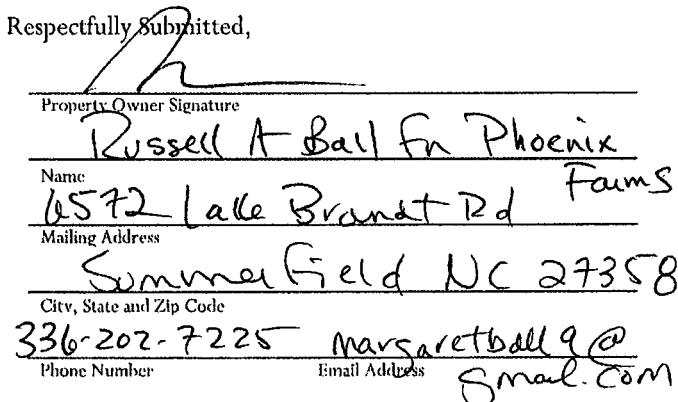 Respectfully Submitted,
Property Owner Signature
Russell A Ball fn Phoenix
Farms
Name
6572 Lake Brandt Rd
Mailing Address
Summerfield NC 27358
City, State and Zip Code
336-202-7225 margaretball9@
gmail.com
Phone Number Email Address